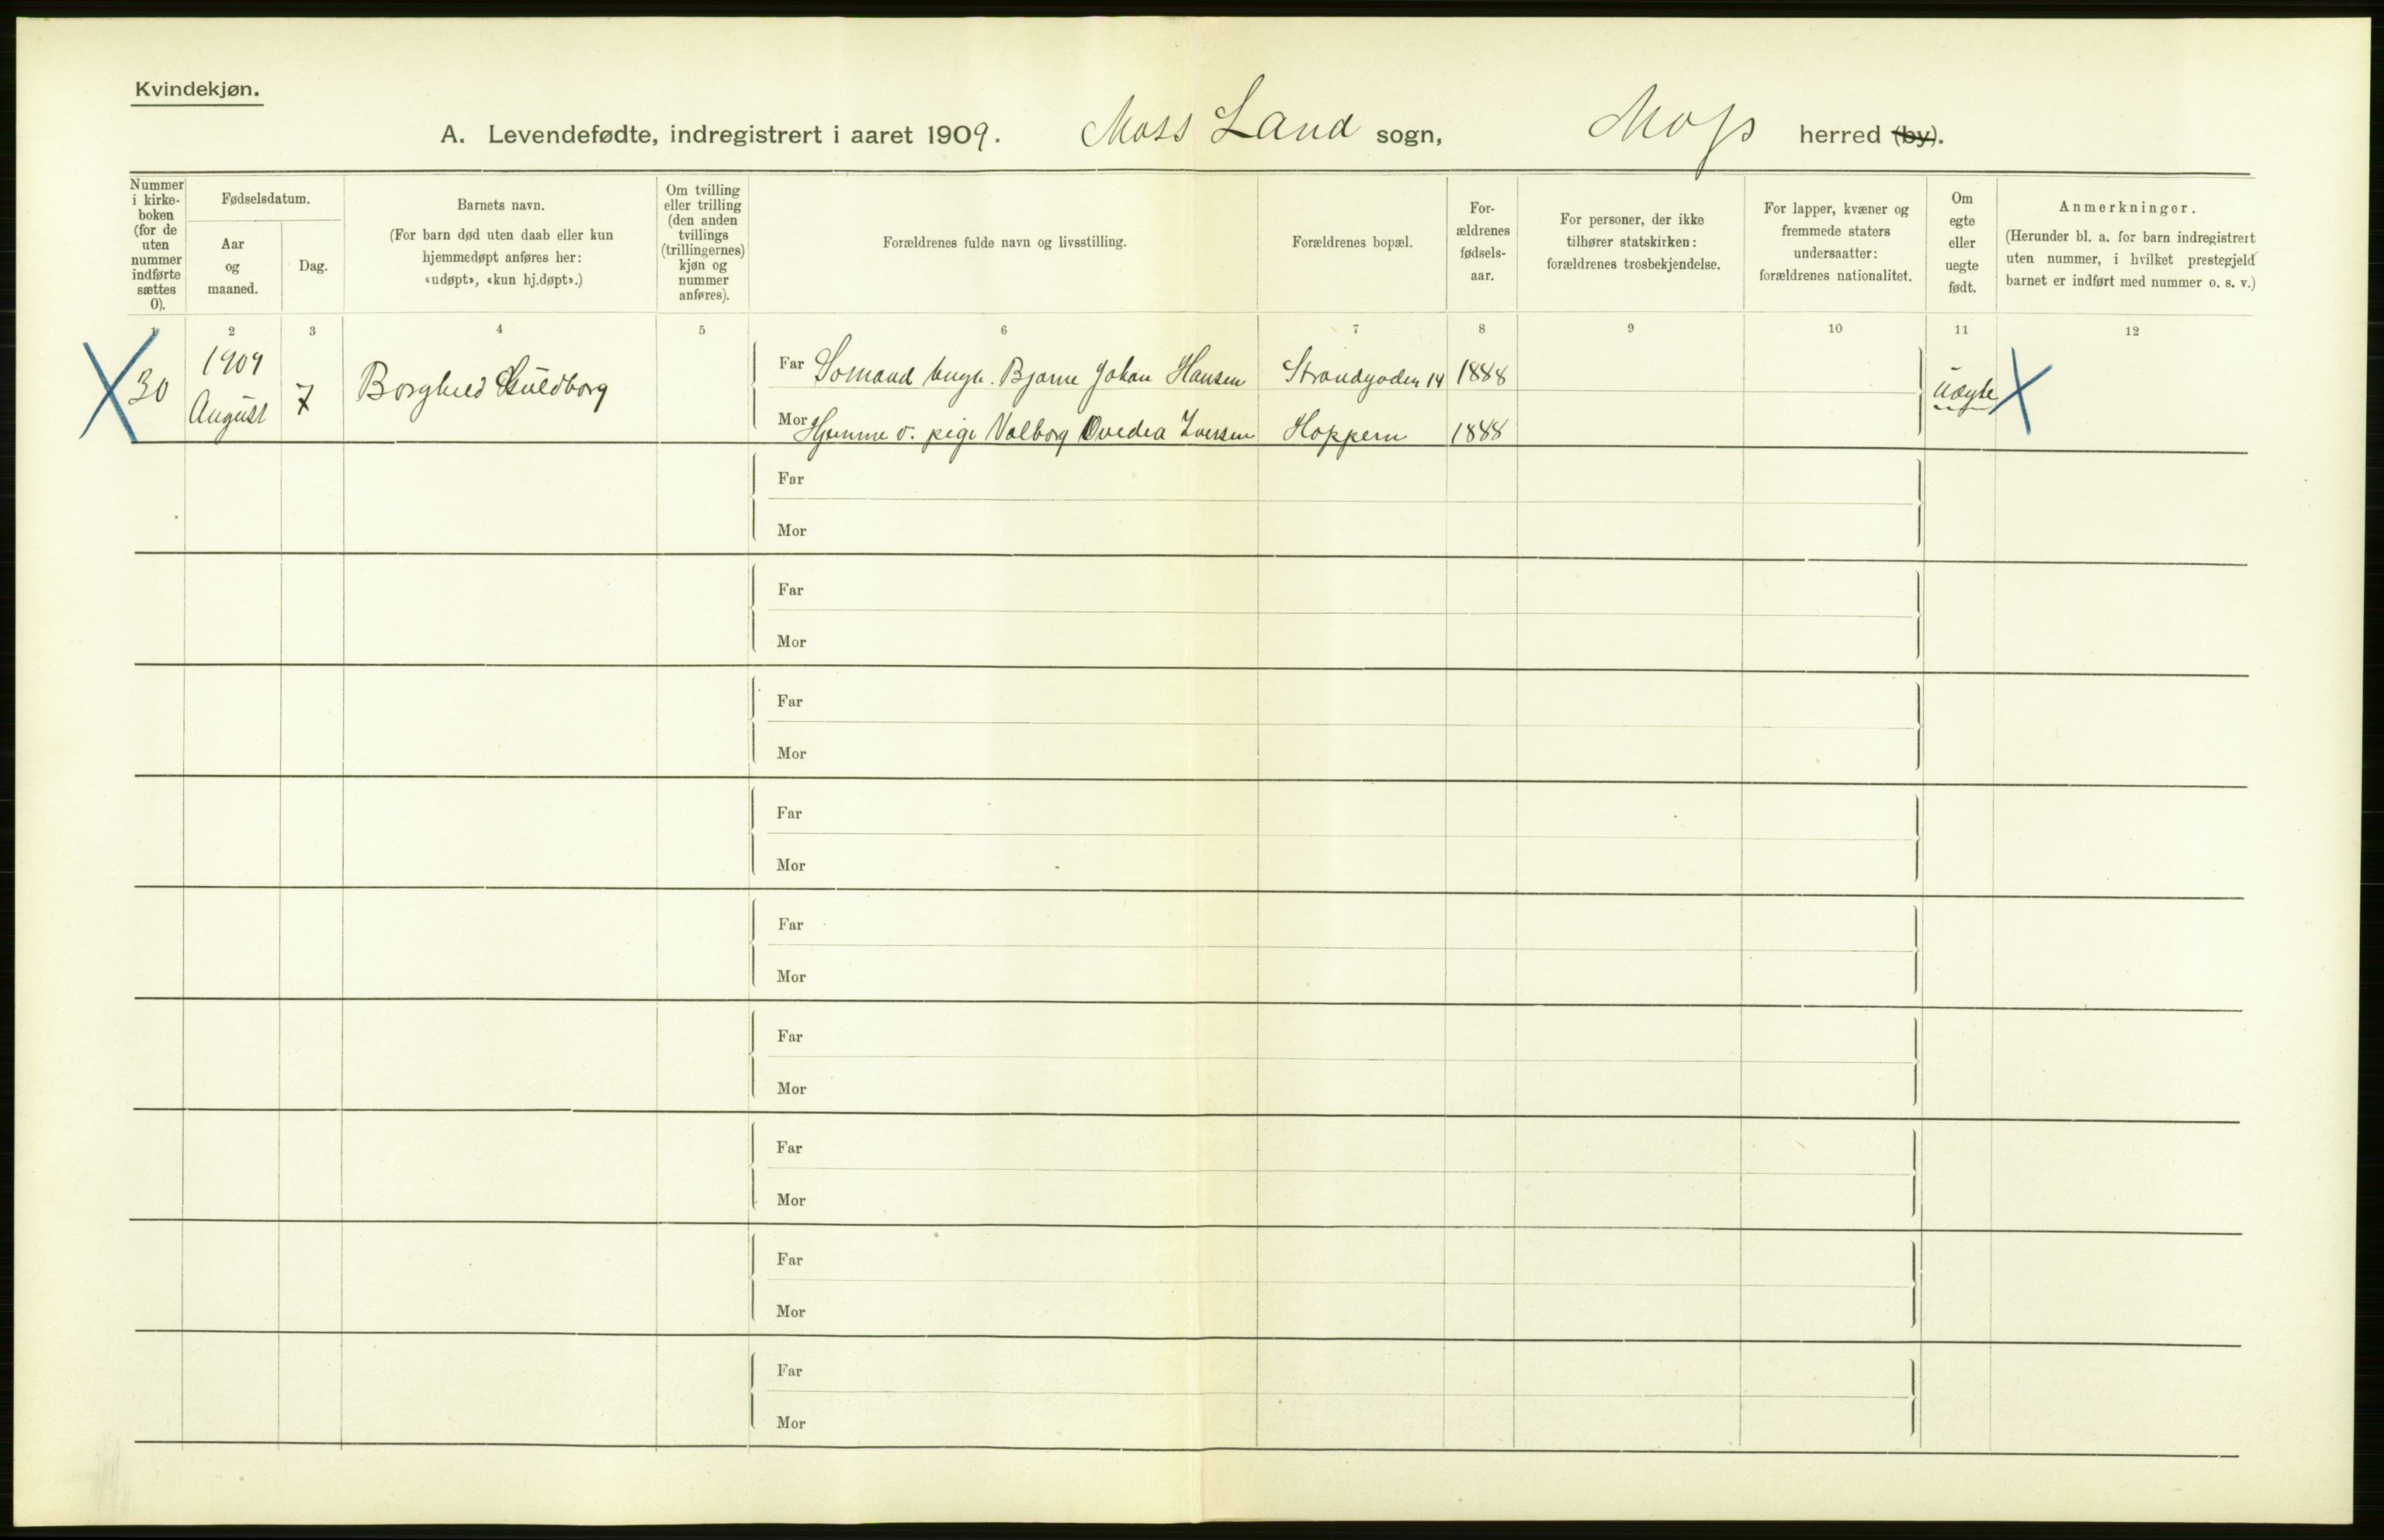 Kvindekjøn.
A. Levendefødte, indregistrert i aaret 1909. Moss Land sogn, Moss herred (by).
Nummer i kirke-boken (for de uten nummer indførte sættes 0).
Fødselsdatum.
Aar og maaned.
Dag.
Barnets navn.
(For barn død uten daab eller kun
hjemmedøpt anføres her:
«udøpt», «kun hj.døpt».)
Om tvilling
eller trilling
(den anden
tvillings
(trillingernes)
kjøn og
nummer
anføres).
Forældrenes fulde navn og livsstilling.
Forældrenes bopæl.
For-
ældrenes
fødsels-
aar.
For personer, der ikke
tilhører statskirken:
forældrenes trosbekjendelse.
For lapper, kvæner og
fremmede staters
undersaatter:
forældrenes nationalitet.
Om
egte
eller
uegte
født.
Anmerkninger.
(Herunder bl. a. for barn indregistrert
uten nummer, i hvilket prestegjeld
barnet er indført med nummer o. s. v.)
1 2 3 4 5 6 7 8 9 10 11 12
30 1909 August 7 Borghild Guldborg
Far Sømand ungk. Bjarne Johan Hansen Strandgaden 14 1888
Uægte
Mor Hjemme v. pige Valborg Ovedia Iversen Hoppern 1888
Far
Mor
Far
Mor
Far
Mor
Far
Mor
Far
Mor
Far
Mor
Far
Mor
Far
Mor
Far
Mor